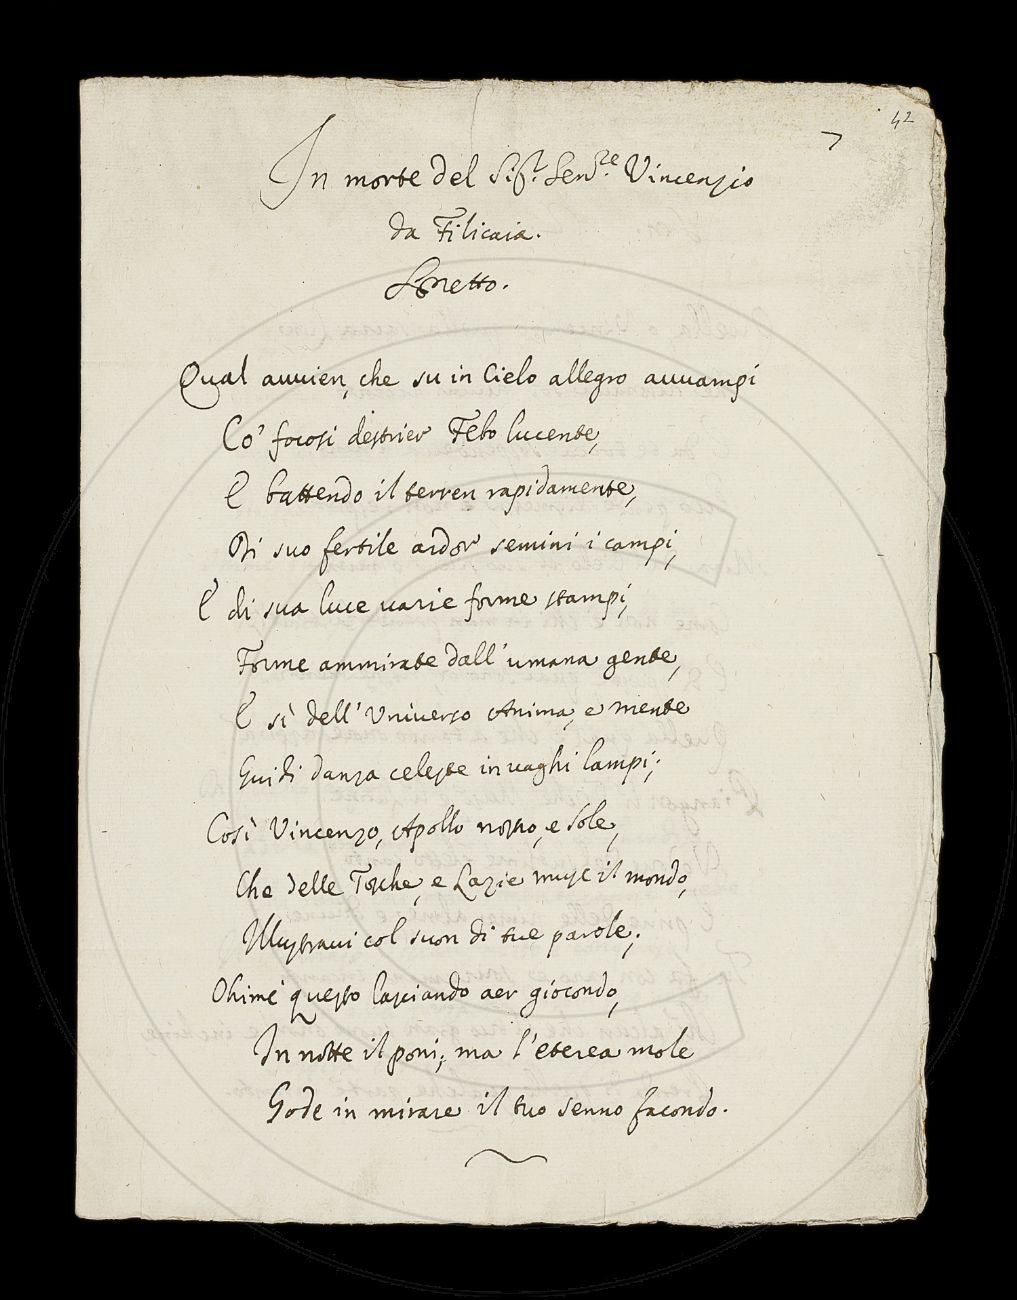 42
7
In morte del Sig.r Sen.re Vincenzio
da Filicaia.
Sonetto.
Qual avvien, che su in Cielo allegro avvampi
Co' focosi destrier Febo lucente,
E battendo il terren rapidamente,
Di suo fertile ardor semini i campi,
E di sua luce varie forme stampi,
Forme ammirate dall' umana gente,
E sì dell' Universo Anima, e mente
Guidi danza celeste in vaghi lampi;
Così Vincenzo, Apollo nostro, e Sole,
Che delle Tosche, e Lazie muse il mondo,
Illustravi col suon di tue parole;
Ohimè questo lasciando aer giocondo,
In notte il poni; ma l'eterea mole
Gode in mirare il tuo senno facondo.